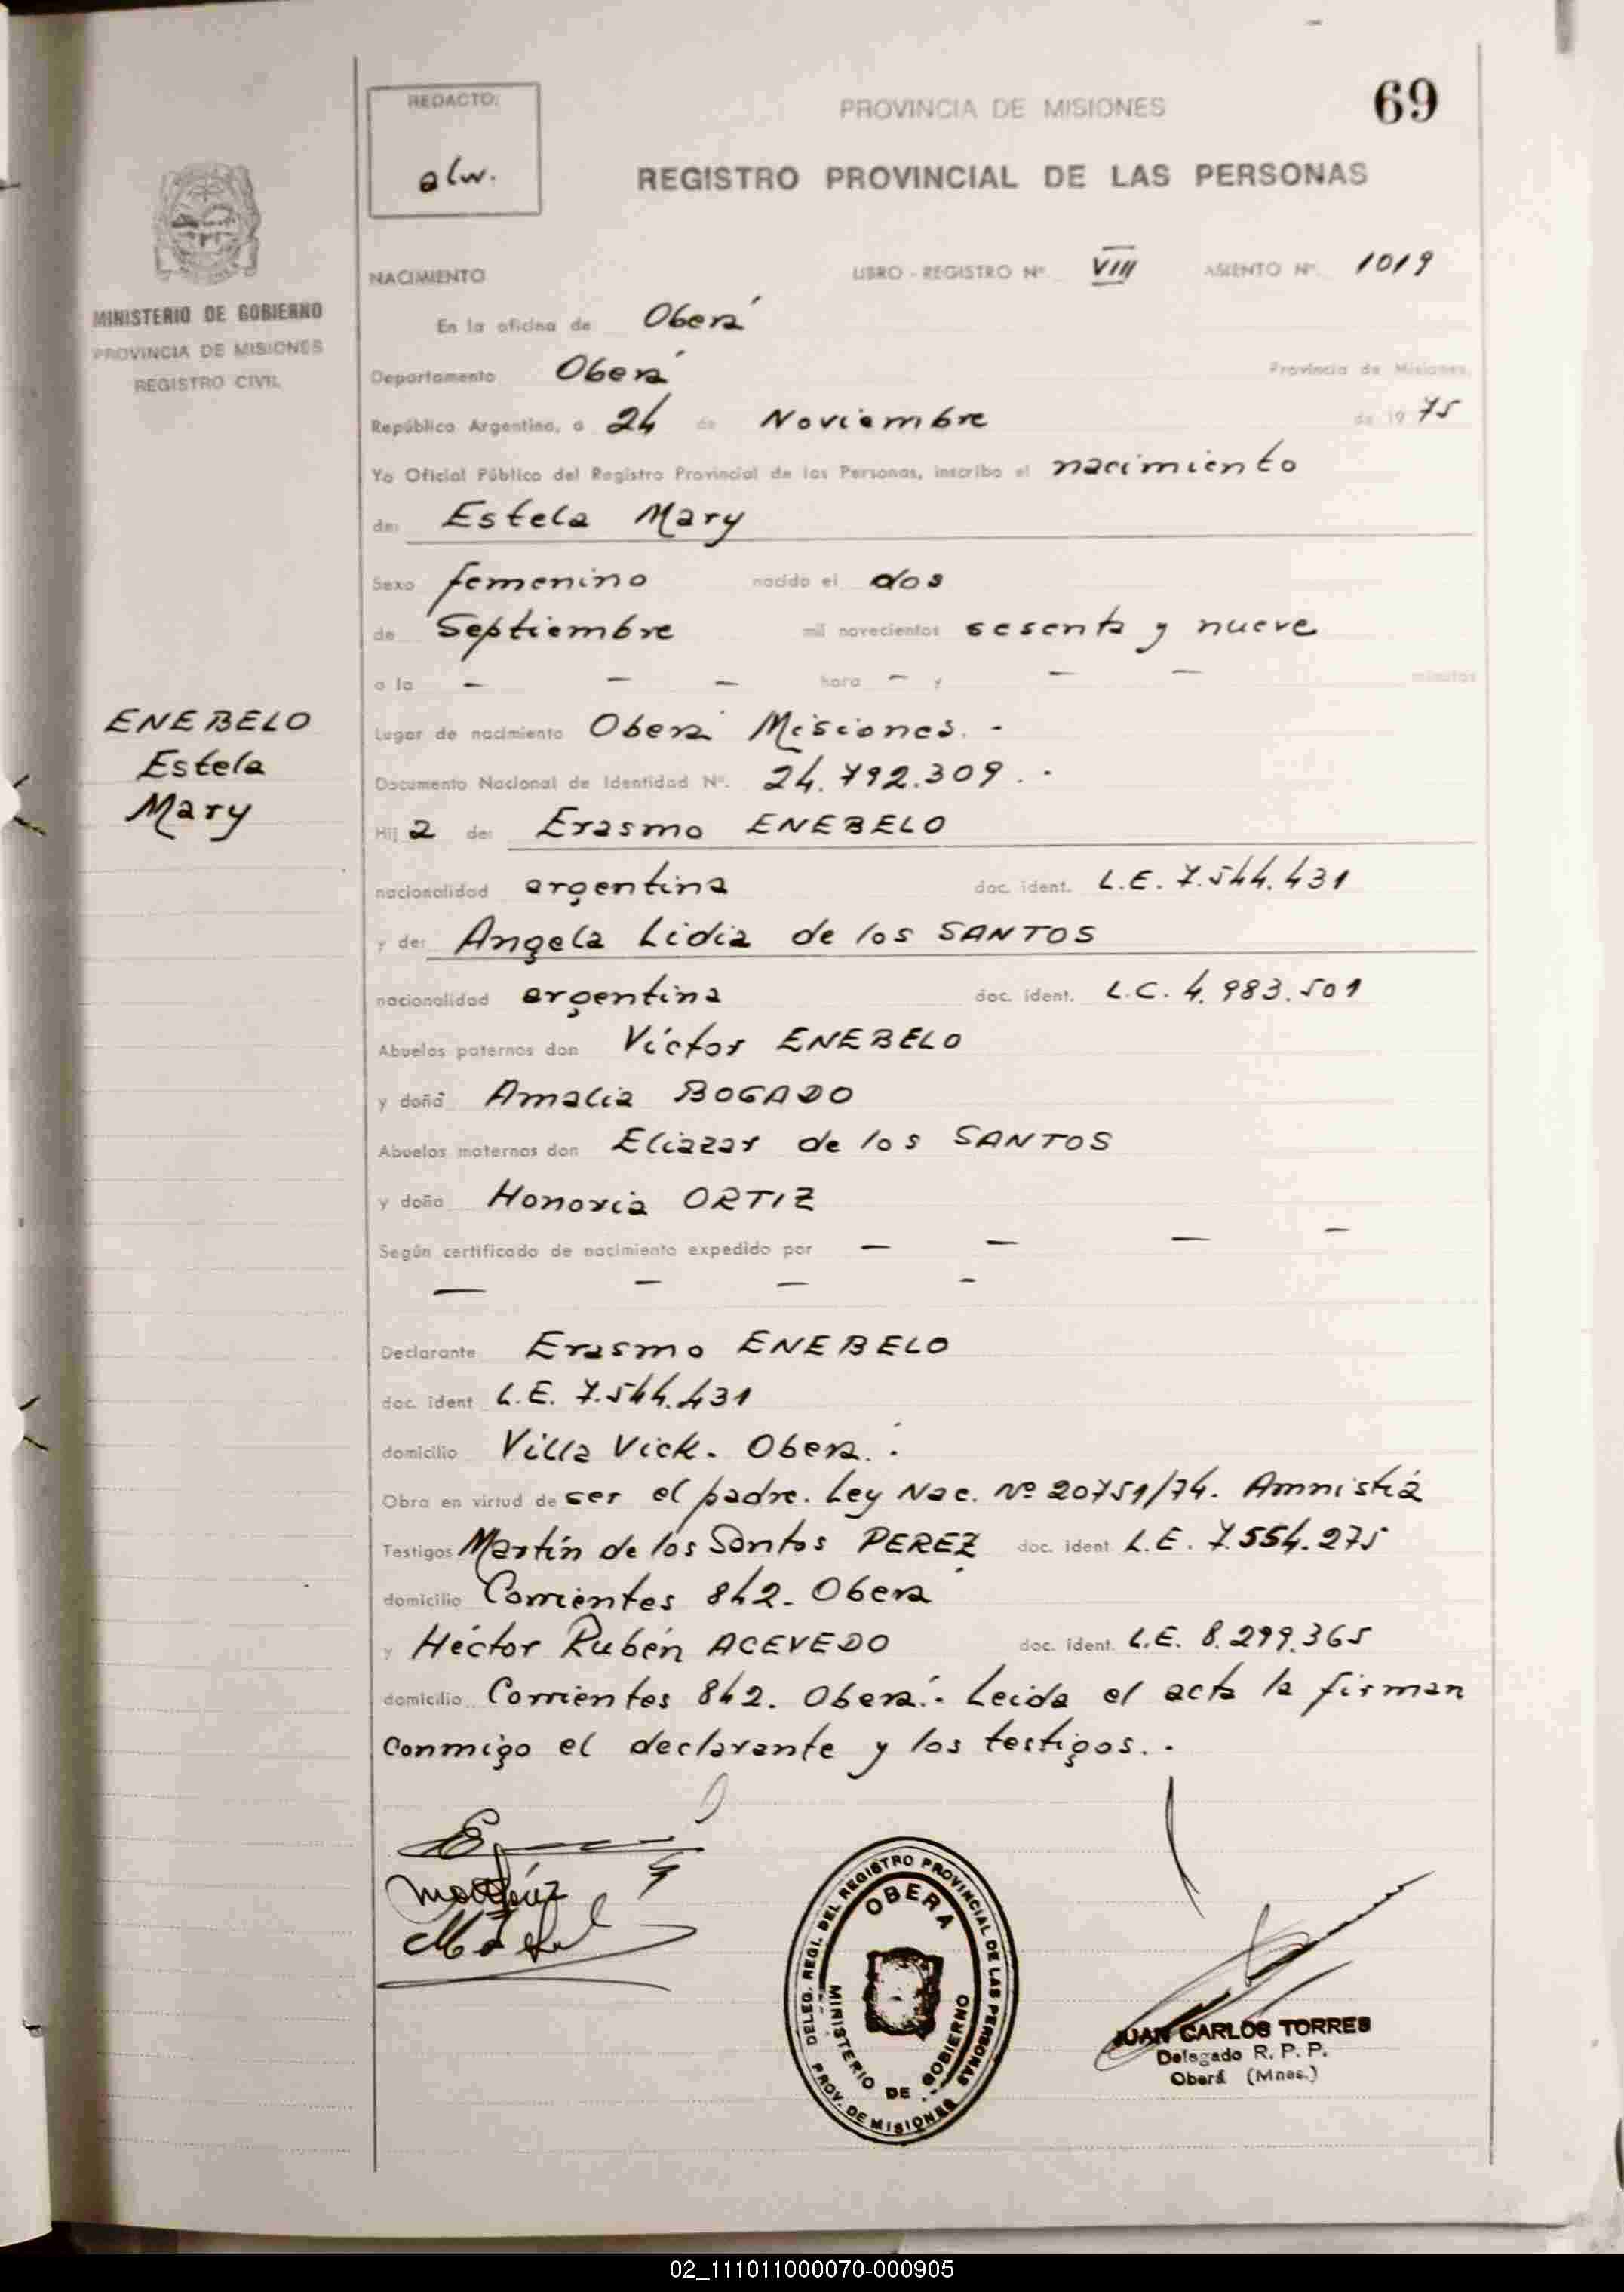 REDACTO:
alw.
PROVINCIA DE MISIONES
69
REGISTRO PROVINCIAL DE LAS PERSONAS
MINISTERIO DE GOBIERNO
PROVINCIA DE MISIONES
REGISTRO CIVIL
NACIMIENTO LIBRO - REGISTRO Nº VIII ASIENTO Nº. 1019
En la oficina de Oberá
Departamento Oberá Provincia de Misiones,
República Argentina, a 24 de Noviembre de 19 75
Yo Oficial Público del Registro Provincial de las Personas, inscribo el nacimiento
de: Estela Mary
Sexo femenino nacido el dos
de Septiembre mil novecientos sesenta y nueve
a la — — — hora — y — — minutos
ENEBELO
Estela
Mary
Lugar de nacimiento Oberá Misiones. -
Documento Nacional de Identidad Nº. 24.792.309. -
Hij a de: Erasmo ENEBELO
nacionalidad argentina doc. ident. L.E. 7.544.431
y de: Angela Lidia de los SANTOS
nacionalidad argentina doc. ident. L.C. 4.983.501
Abuelos paternos don Víctor ENEBELO
y doña Amalia BOGADO
Abuelos maternos don Eliazar de los SANTOS
y doña Honoria ORTIZ
Según certificado de nacimiento expedido por — — — —
— — — -
Declarante Erasmo ENEBELO
doc. ident L.E. 7.544.431
domicilio Villa Vick. Oberá. -
Obra en virtud de ser el padre. Ley Nac. Nº 20751/74. Amnistiá
Testigos Martín de los Santos PEREZ doc. ident L.E. 7.554.275
domicilio Corrientes 842. Oberá
y Héctor Rubén ACEVEDO doc. ident. L.E. 8.299.365
domicilio Corrientes 842. Oberá. - Leida el acta la firman
conmigo el declarante y los testigos. -
DELEG. REGI. DEL REGISTRO PROVINCIAL DE LAS PERSONAS
OBERA
MINISTERIO DE GOBIERNO
PROV. DE MISIONES
JUAN CARLOS TORRES
Delegado R. P. P.
Oberá (Mnes.)
02_111011000070-000905